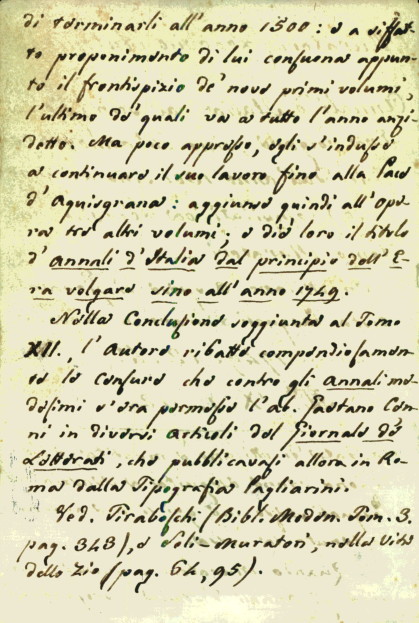 di terminarli all'anno 1500: e a siffat-
to proponimento di lui consuona appun-
to il frontispizio de' nove primi volumi,
l'ultimo de' quali va a tutto l'anno anzi-
detto. Ma poco appresso, egli s'indusse
a continuare il suo lavoro fino alla Pace
d'Aquisgrana: aggiunse quindi all'Ope-
ra tre altri volumi; e diè loro il titolo
d'Annali d'Italia dal principio dell'E-
ra volgare sino all'anno 1749.
Nella Conclusione soggiunta al Tomo
XII., l'Autore ribatte compendiosamen-
te le censure che contro gli Annali me-
desimi s'era permesse l'ab. Gaetano Cen-
ni in diversi articoli del Giornale de'
Letterati, che pubblicavasi allora in Ro-
ma dalla Tipografia Pagliarini.
Ved. Tiraboschi (Bibl. Moden. Tom. 3.
pag. 343), e Soli-Muratori, nella Vita
dello Zio (pag. 64, 95).